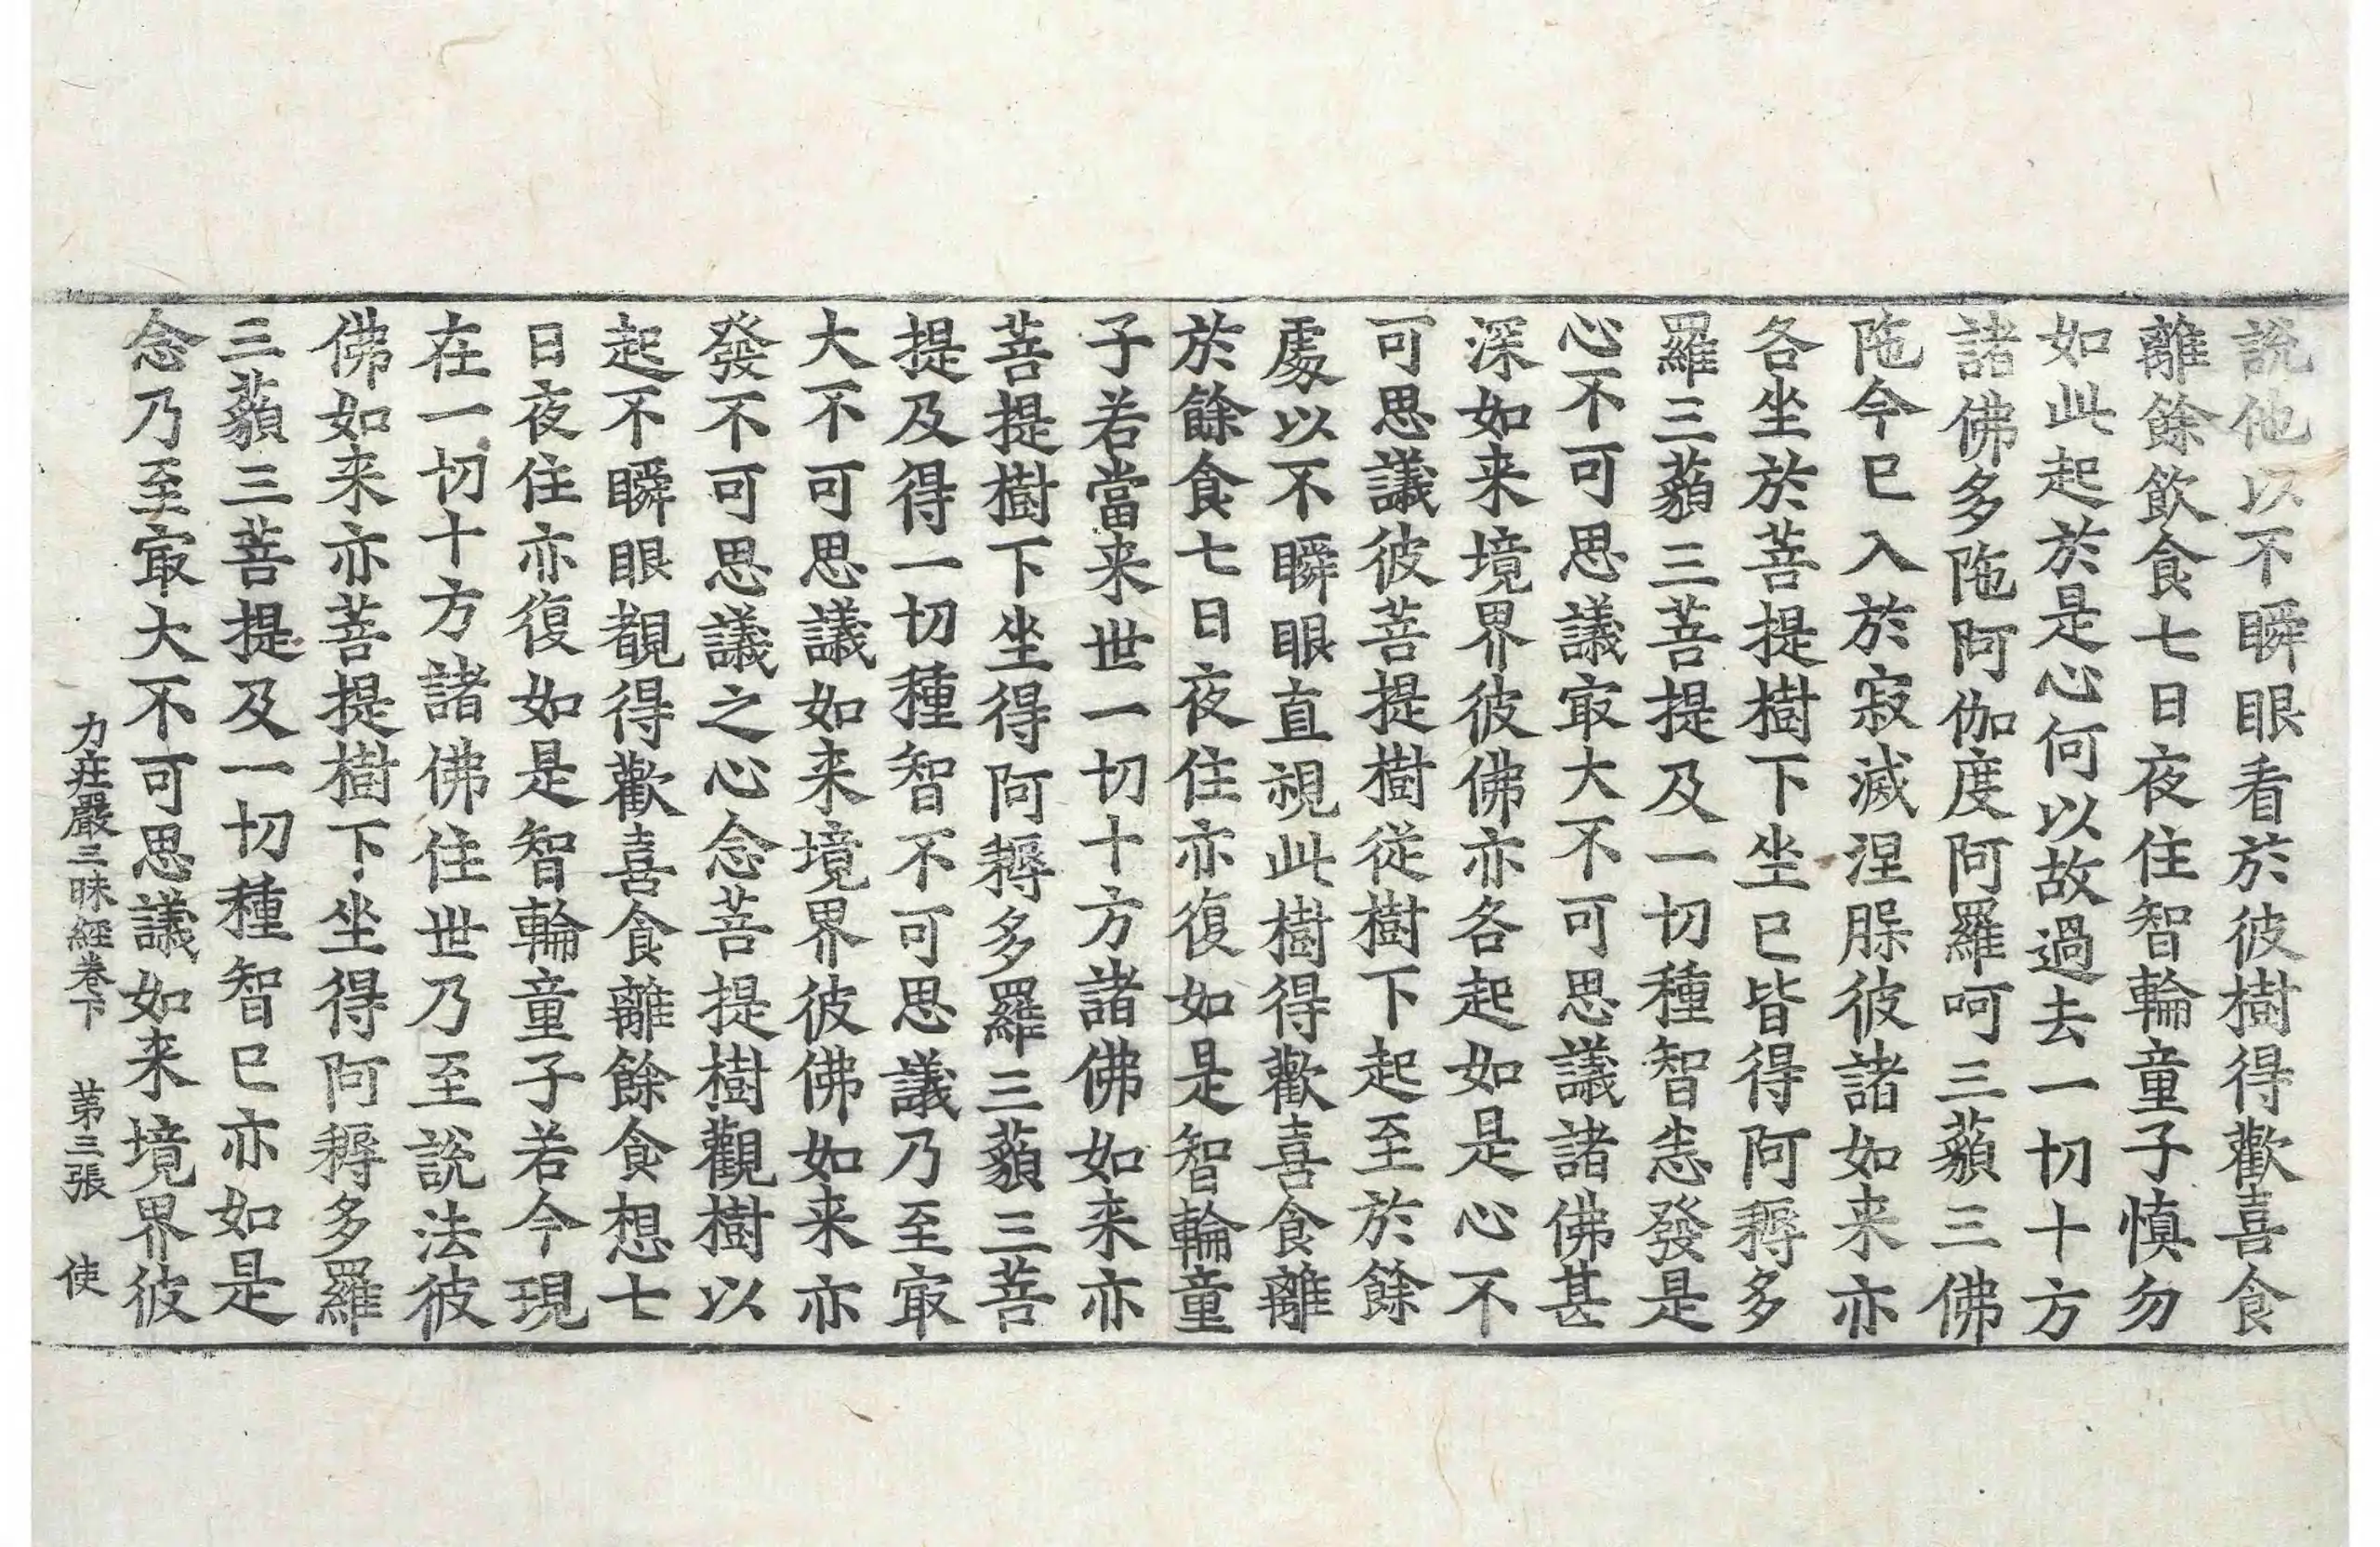 說他以不瞬眼看於彼樹得歡喜食
離餘飲食七日夜住智輪童子慎勿
如此起於是心何以故過去一切十方
諸佛多陁阿伽度阿羅呵三藐三佛
陁今已入於寂滅涅脲彼諸如来亦
各坐於菩提樹下坐已皆得阿耨多
羅三藐三菩提及一切種智恙發是
心不可思議㝡大不可思議諸佛甚
深如来境界彼佛亦各起如是心不
可思議彼菩提樹從樹下起至於餘
處以不瞬眼直視此樹得歡喜食離
於餘食七日夜住亦復如是智輪童
子若當来世一切十方諸佛如来亦
菩提樹下坐得阿耨多羅三藐三菩
提及得一切種智不可思議乃至㝡
大不可思議如来境界彼佛如来亦
發不可思議之心念菩提樹觀樹以
起不瞬眼覩得歡喜食離餘食想七
日夜住亦復如是智輪童子若今現
在一切十方諸佛住世乃至說法彼
佛如来亦菩提樹下坐得阿耨多羅
三藐三菩提及一切種智已亦如是
念乃至㝡大不可思議如来境界彼
力莊嚴三昧經卷下 苐三張 使